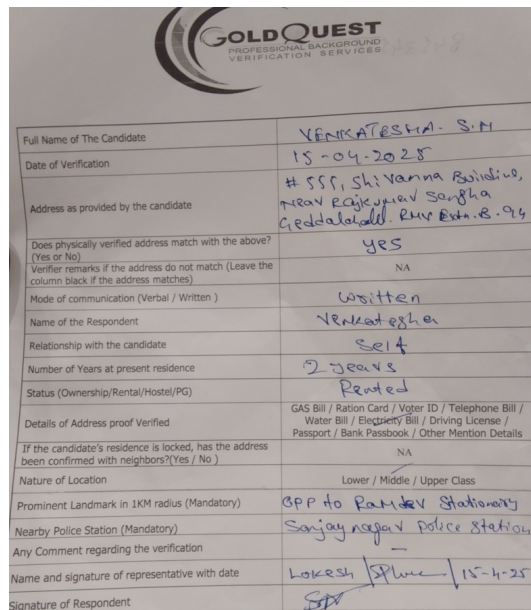 GOLDQUEST
PROFESSIONAL BACKGROUND
VERIFICATION SERVICES
Full Name of The Candidate VENKATESHA. S.N
Date of Verification 15-04-2025
Address as provided by the candidate # 555, Shivanna Building,
Near Rajkumar Sangha
Geddalahalli. RMV Extn. B. 94
Does physically verified address match with the above?
(Yes or No) yes
Verifier remarks if the address do not match (Leave the
column black if the address matches) NA
Mode of communication (Verbal / Written ) written
Name of the Respondent Venkatesha
Relationship with the candidate Self
Number of Years at present residence 2 years
Status (Ownership/Rental/Hostel/PG) Rented
Details of Address proof Verified GAS Bill / Ration Card / Voter ID / Telephone Bill /
Water Bill / Electricity Bill / Driving License /
Passport / Bank Passbook / Other Mention Details
If the candidate's residence is locked, has the address
been confirmed with neighbors?(Yes / No ) NA
Nature of Location Lower / Middle / Upper Class
Prominent Landmark in 1KM radius (Mandatory) OPP to Ramdev Stationary
Nearby Police Station (Mandatory) Sanjaynagar police station
Any Comment regarding the verification —
Name and signature of representative with date Lokesh / / 15-4-25
Signature of Respondent